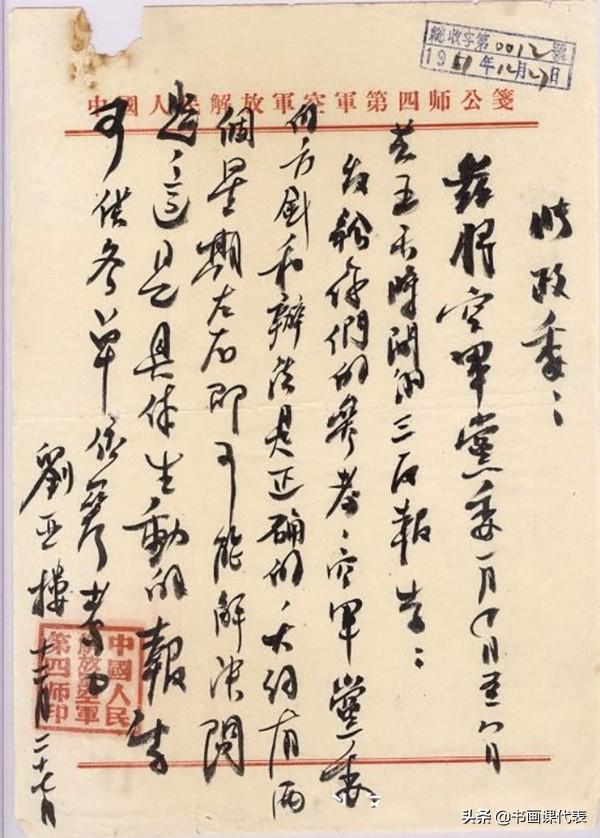 總收字第0012號
1951年12月27日
中國人民解放軍空軍第四师公箋
政委：
茲將空軍黨委一月 日至八日
共五天時間的三反報告：
发給你們的參考、空軍黨委
的方針和辦法是正确的大约有兩
個星期左右即可能解決問
題、這是具体生動的報告
可供各單位參考
劉亞樓 十二月二十七日
中國人民
解放空軍
第四师印
头条 @书画课代表